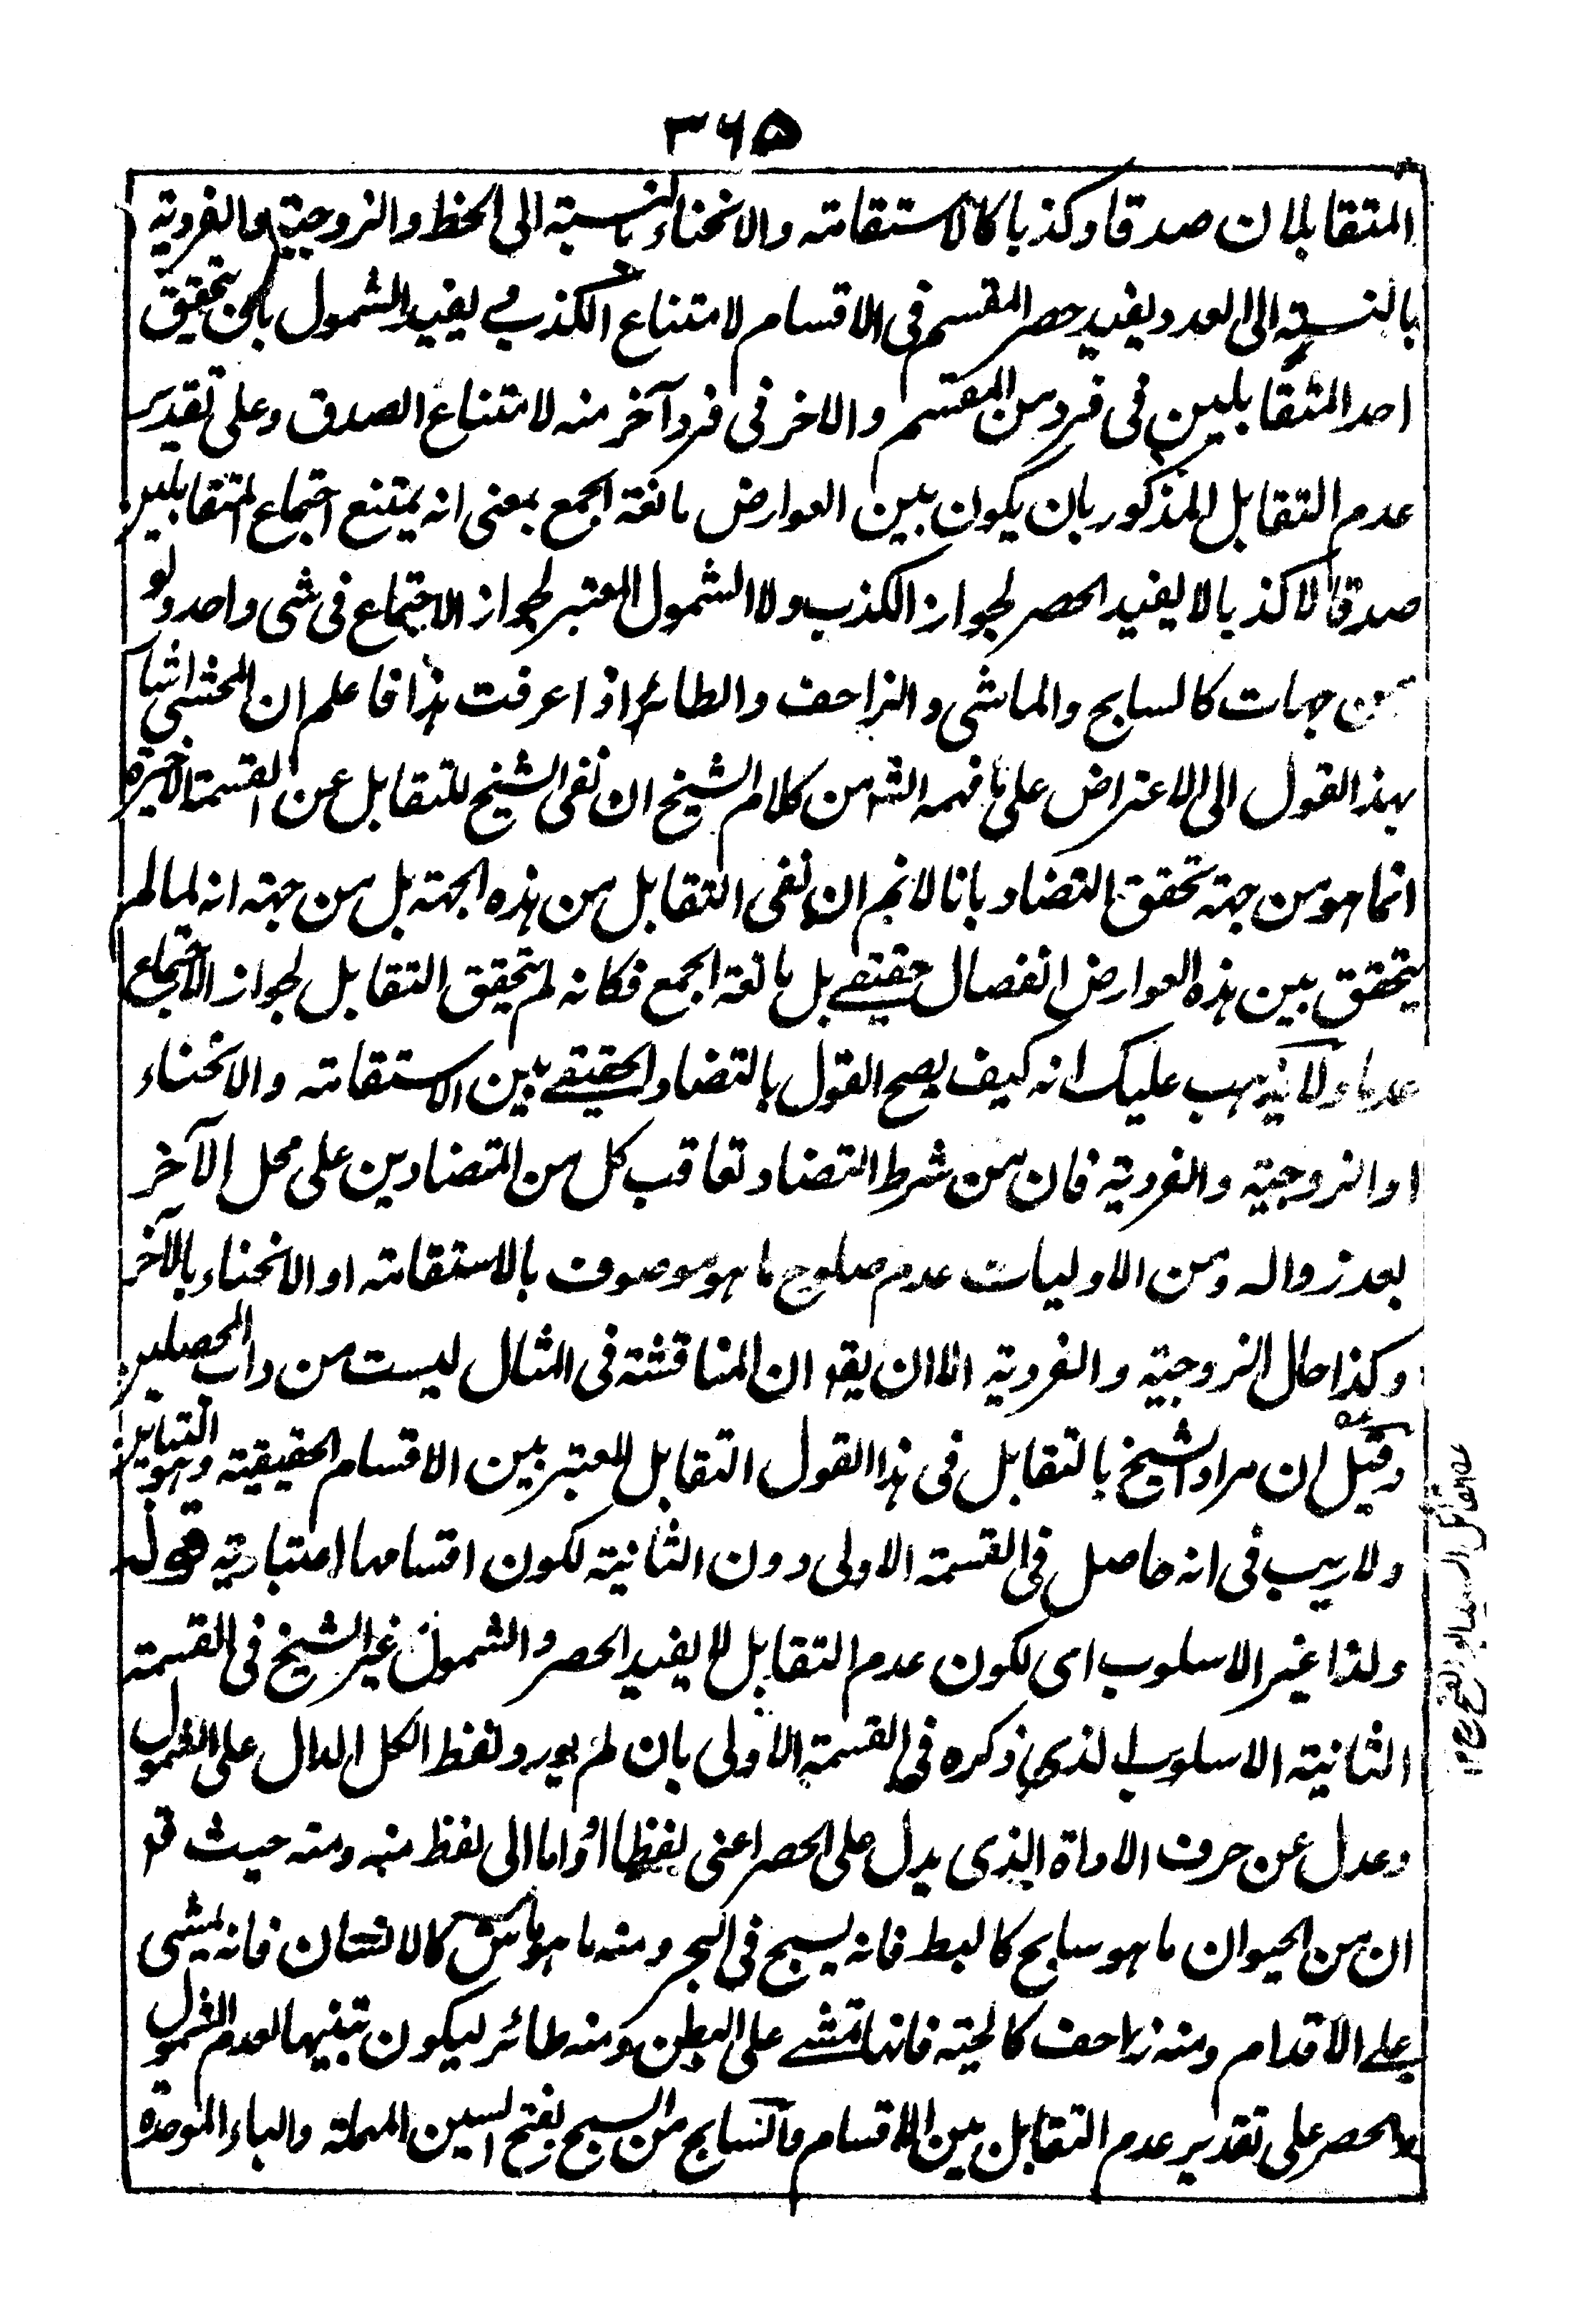 ٣٦٥
المتقابلان صدقا وكذبا كالاستقامة والانحناء بالنسبة الى الخط والزوجية والفردية
بالنسبة الى العدد يفيد حصر المقسم فى الاقسام لامتناع الكذب يفيد الشمول بان يتحقق
احد المتقابلين فى فرد من المقسم والاخر فى فرد آخر منه لامتناع الصدق وعلى تقدير
عدم التقابل المذكور بان يكون بين العوارض مانعة الجمع بمعنى انه يمتنع اجتماع المتقابلين
صدقا لا كذبا لا يفيد الحصر لجواز الكذب ولا الشمول المعتبر لجواز الاجتماع فى شى واحد ولو
من جهات كالسابح والماشى والزاحف والطائر اذا عرفت هذا فاعلم ان المحشى اشار
بهذا القول الى الاعتراض على ما فهمه الشه من كلام الشيخ ان نفى الشيخ للتقابل عن القسمة الاخيرة
انما هو من جهة تحقق التضاد بانا لا نم ان نفى التقابل من هذه الجهة بل من جهة انه لما لم
يتحقق بين هذه العوارض انفصال حقيقى بل مانعة الجمع فكانه لم يتحقق التقابل لجواز الاجتماع
عدما ولا يذهب عليك انه كيف يصح القول بالتضاد الحقيقى بين الاستقامة والانحناء
او الزوجية والفردية فان من شرط التضاد تعاقب كل من المتضادين على محل الآخر
بعد زواله ومن الاوليات عدم صلوح ما هو موصوف بالاستقامة او الانحناء بالآخر
وكذا حال الزوجية والفردية الا ان يقو ان المناقشة فى المثال ليست من داب المحصلين
وقيل ان مراد الشيخ بالتقابل فى هذا القول التقابل المعتبر بين الاقسام الحقيقية وهو التباين
ولا ريب فى انه حاصل فى القسمة الاولى دون الثانية لكون اقسامها اعتبارية قوله
ولذا غير الاسلوب اى لكون عدم التقابل لا يفيد الحصر والشمول غير الشيخ فى القسمة
الثانية الاسلوب الذى ذكره فى القسمة الاولى بان لم يورد لفظ الكل الدال على الشمول
وعدل عن حرف الاداة الذى يدل على الحصر اعنى لفظا او اما الى لفظ منه ومنه حيث قو
ان من الحيوان ما هو سابح كالبط فانه يسبح فى البحر ومنه ما هو ماش كالانسان فانه يمشى
على الاقدام ومنه زاحف كالحية فانها تمشى على البطن ومنه طائر ليكون تنبيها لعدم الشمول
والحصر على تقدير عدم التقابل بين الاقسام والسابح من السبح بفتح السين المهملة والباء الموحدة
القائل السيد ابو الفتح ١٢